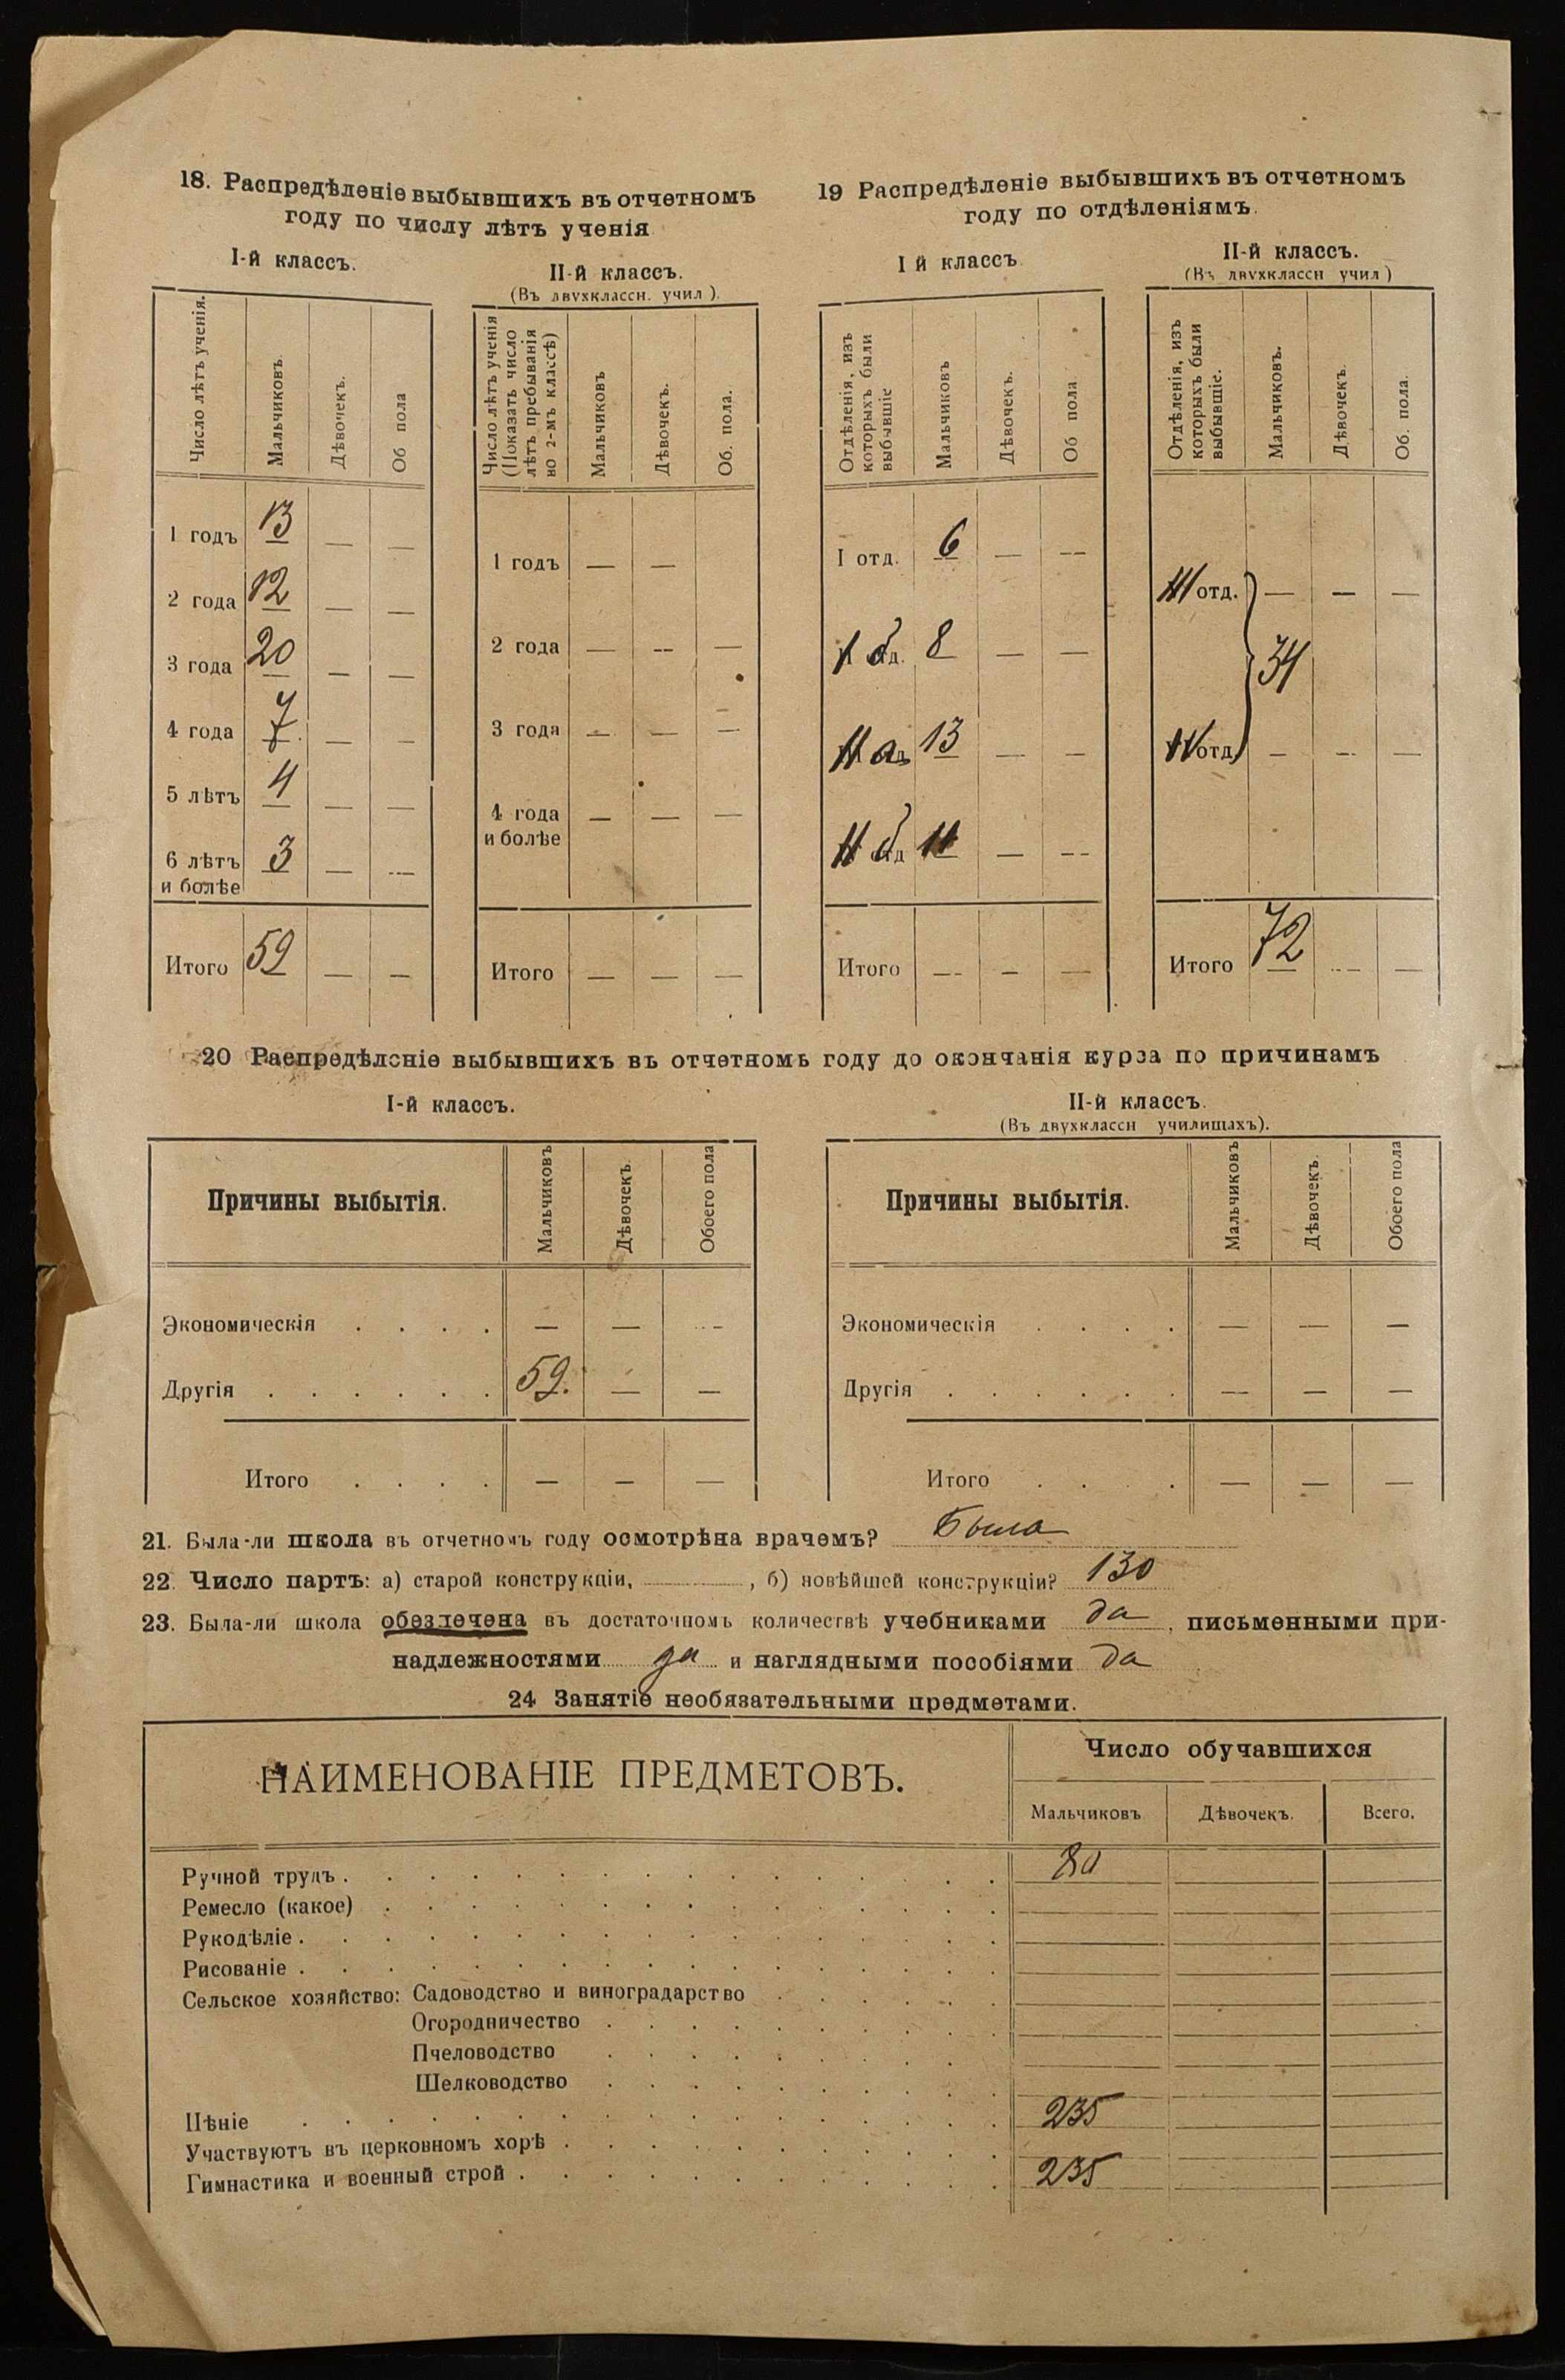 18. Распредѣленіе выбывшихъ въ отчетномъ
году по числу лѣтъ ученія
I-й классъ.
II-й классъ.
(Въ двухклассн. учил.).
Число лѣтъ ученія.
Мальчиковъ.
Дѣвочекъ.
Об пола
Число лѣтъ ученія
(Показать число
лѣтъ пребыванія
во 2-мъ классѣ)
Мальчиковъ
Дѣвочекъ.
Об. пола.
1 годъ 13 — —
2 года 12 — —
3 года 20 — —
4 года 7 — —
5 лѣтъ 4 — —
6 лѣтъ 3 — —
и болѣе
Итого 59 — —
1 годъ — —
2 года — — —
3 года — — —
4 года — — —
и болѣе
Итого — — —
19 Распредѣленіе выбывшихъ въ отчетномъ
году по отдѣленіямъ.
I й классъ
II-й классъ.
(Въ двухклассн учил )
Отдѣленія, изъ
которыхъ были
выбывшіе
Мальчиковъ
Дѣвочекъ.
Об пола
Отдѣленія, изъ
которыхъ были
выбывшіе.
Мальчиковъ.
Дѣвочекъ.
Об. пола.
I отд. 6 — —
I б 8 — —
II а 13 — —
II б 11 — —
Итого — — —
III отд. — — —
34
IV отд — — —
Итого 72 — —
20 Распредѣленіе выбывшихъ въ отчетномъ году до окончанія курса по причинамъ
I-й классъ.
II-й классъ.
(Въ двухклассн училищахъ).
Причины выбытія.
Мальчиковъ
Дѣвочекъ.
Обоего пола
Экономическія . . . . — — —
Другія . . . . . . 59. — —
Итого . . . . — — —
Причины выбытія.
Мальчиковъ
Дѣвочекъ.
Обоего пола
Экономическія . . . . — — —
Другія . . . . . . — — —
Итого . . . . — — —
21. Была-ли школа въ отчетномъ году осмотрѣна врачемъ? Была
22. Число партъ: а) старой конструкціи, , б) новѣйшей конструкціи? 130
23. Была-ли школа обезпечена въ достаточномъ количествѣ учебниками да, письменными при-
надлежностями да и наглядными пособіями да
24 Занятіе необязательными предметами.
НАИМЕНОВАНІЕ ПРЕДМЕТОВЪ.
Число обучавшихся
Мальчиковъ
Дѣвочекъ.
Всего.
Ручной трудъ 80
Ремесло (какое)
Рукодѣліе
Рисованіе
Сельское хозяйство: Садоводство и виноградарство
Огородничество
Пчеловодство
Шелководство
Пѣніе 235
Участвуютъ въ церковномъ хорѣ
Гимнастика и военный строй 235